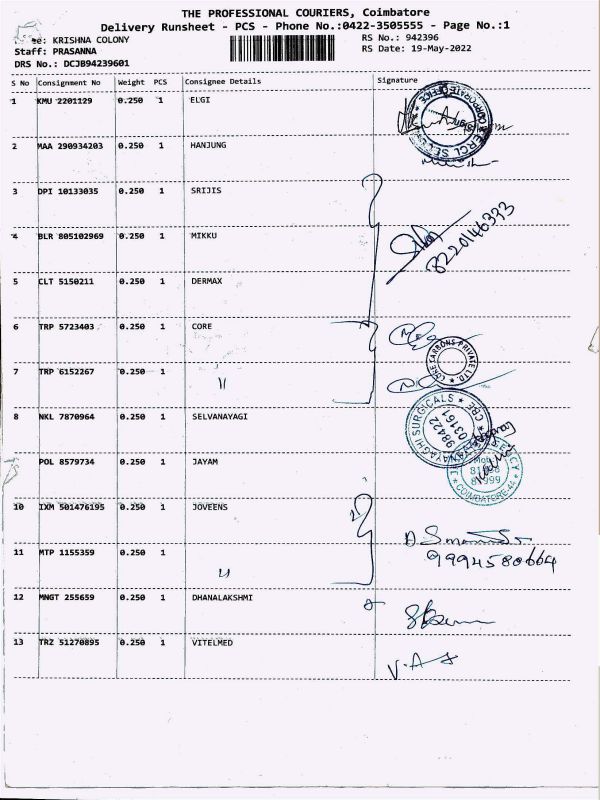 THE PROFESSIONAL COURIERS, Coimbatore
Delivery Runsheet - PCS - Phone No.:0422-3505555 - Page No.:1
ee: KRISHNA COLONY
RS No.: 942396
Staff: PRASANNA
RS Date: 19-May-2022
DRS No.: DCJB94239601
S No Consignment No Weight PCS Consignee Details Signature
1 KMU 2201129 0.250 1 ELGI
2 MAA 290934203 0.250 1 HANJUNG
3 DPI 10133035 0.250 1 SRIJIS
4 BLR 805102969 0.250 1 MIKKU
8220146333
5 CLT 5150211 0.250 1 DERMAX
6 TRP 5723403 0.250 1 CORE
7 TRP 6152267 0.250 1 "
CORE CARBONS PRIVATE LTD
8 NKL 7870964 0.250 1 SELVANAYAGI
98422
03161
POL 8579734 0.250 1 JAYAM
COIMBATORE-44
10 IXM 501476195 0.250 1 JOVEENS
11 MTP 1155359 0.250 1 "
9994580664
12 MNGT 255659 0.250 1 DHANALAKSHMI
13 TRZ 51270895 0.250 1 VITELMED
V.A